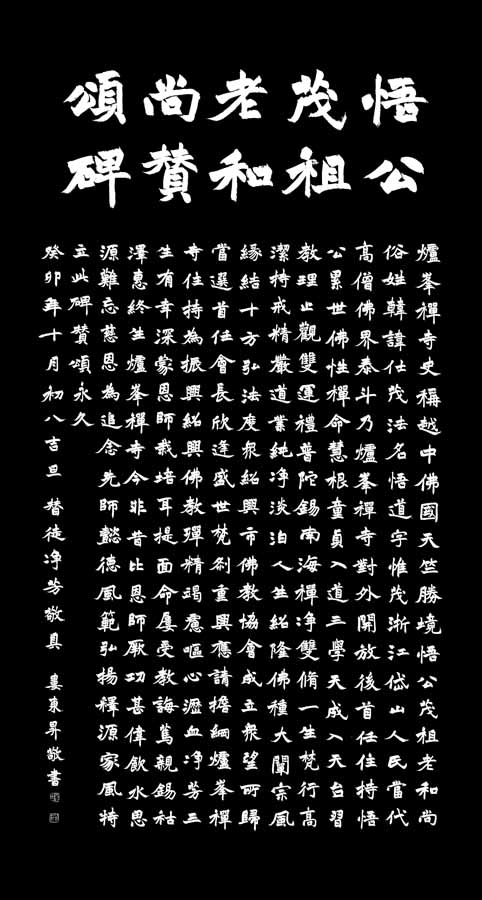 悟公
茂祖
老和
尚贊
頌碑
爐峯禪寺史稱越中佛國天竺勝境悟公茂祖老和尚
俗姓韓諱仕茂法名悟道字惟茂浙江岱山人民當代
高僧佛界泰斗乃爐峯禪寺對外開放後首任住持悟
公累世佛性禪命慧根童貞入道三學天成入天台習
教理止觀雙運禮普陀錫南海禪淨雙脩一生梵行高
潔持戒精嚴道業純淨淡泊人生紹隆佛種大闡宗風
緣結十方弘法度衆紹興市佛教協會成立衆望所歸
當選首任會長欣逢盛世梵刹重興應請擔綱爐峯禪
寺住持為振興紹興佛教殫精竭慮嘔心瀝血淨芳三
生有幸深蒙恩師栽培耳提面命屢受教誨篤親錫祜
澤惠終生爐峯禪寺今非昔比恩師厥功甚偉飲水思
源難忘慈恩為追念先師懿德風範弘揚釋源家風特
立此碑贊頌永久
癸卯年十月初八吉旦 替徒淨芳敬具 婁東昇敬書